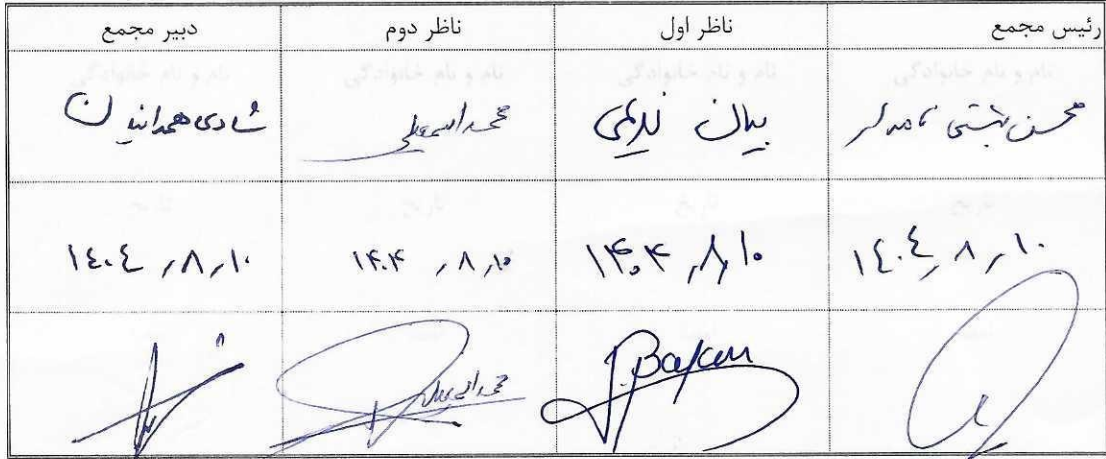 رئیس مجمع ناظر اول ناظر دوم دبیر مجمع
نام و نام خانوادگی نام و نام خانوادگی نام و نام خانوادگی نام و نام خانوادگی
محسن بهشتی نامدار بیان ندیمی محمد اسمعیلی شادی همدانیان
۱۴۰۴/۸/۱۰ ۱۴۰۴/۸/۱۰ ۱۴۰۴/۸/۱۰ ۱۴۰۴/۸/۱۰
Bayan